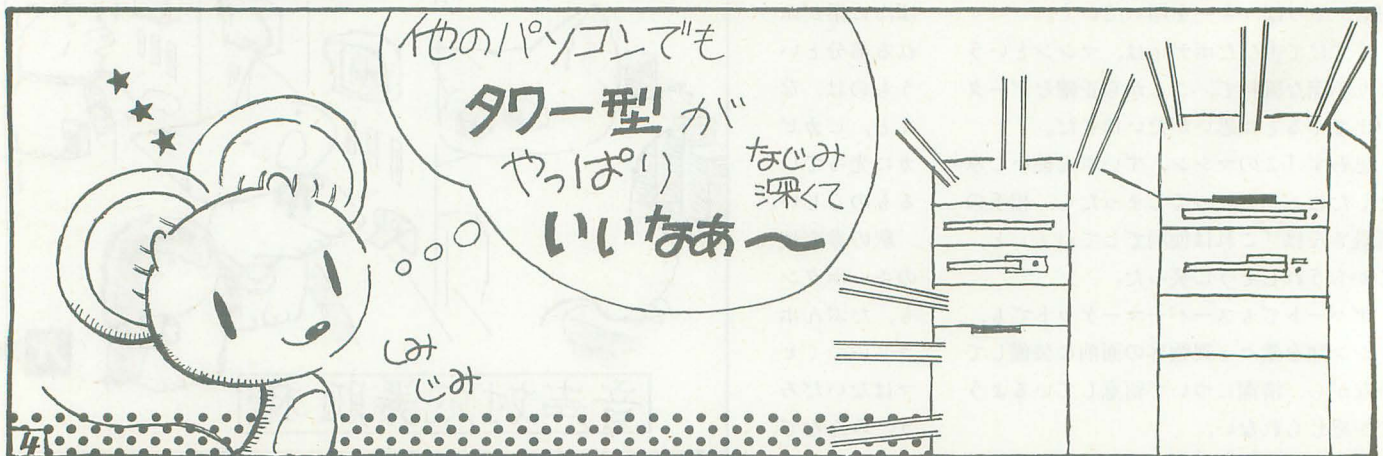 他のパソコンでも
タワー型が
やっぱり
なじみ
深くて
いいなあ〜
しみ
じみ
4